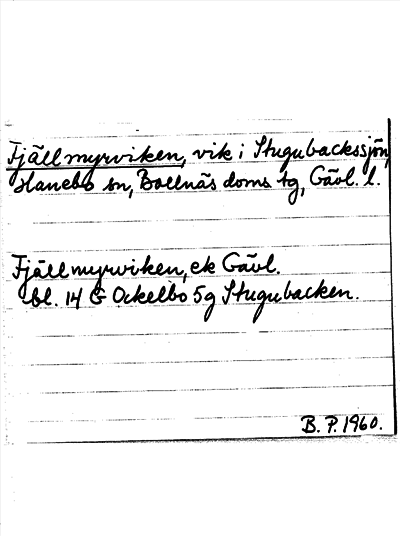 Fjällmyrviken, vik i Stugubackssjön,
Hanebo sn, Bollnäs doms tg, Gävl. l.
Fjällmyrviken, ek Gävl.
bl. 14 G Ockelbo 5g Stugubacken.
B. P. 1960.